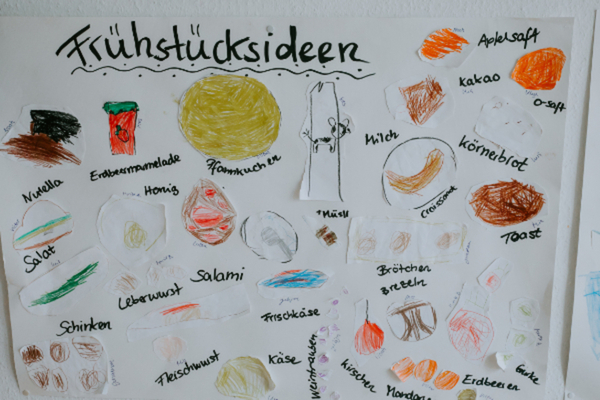 Frühstücksideen
Apfelsaft
Kakao
O-Saft
Milch
Körnerbrot
Erdbeermarmelade
Pfannkuchen
Nutella
Honig
Croissant
Toast
Müsli
Salat
Salami
Leberwurst
Brötchen
Brezeln
Frischkäse
Schinken
Fleischwurst
Käse
Weintrauben
Kirschen
Erdbeeren
Gurke